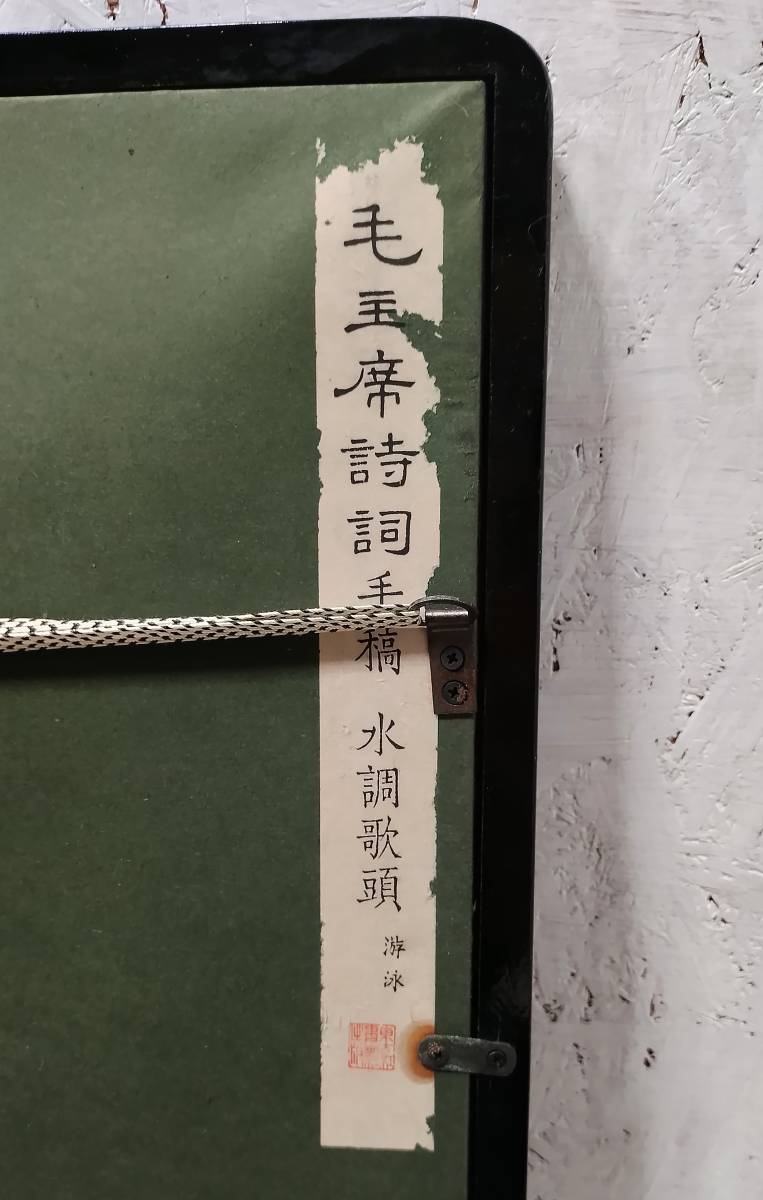 毛主席詩詞手稿 水調歌頭
游泳